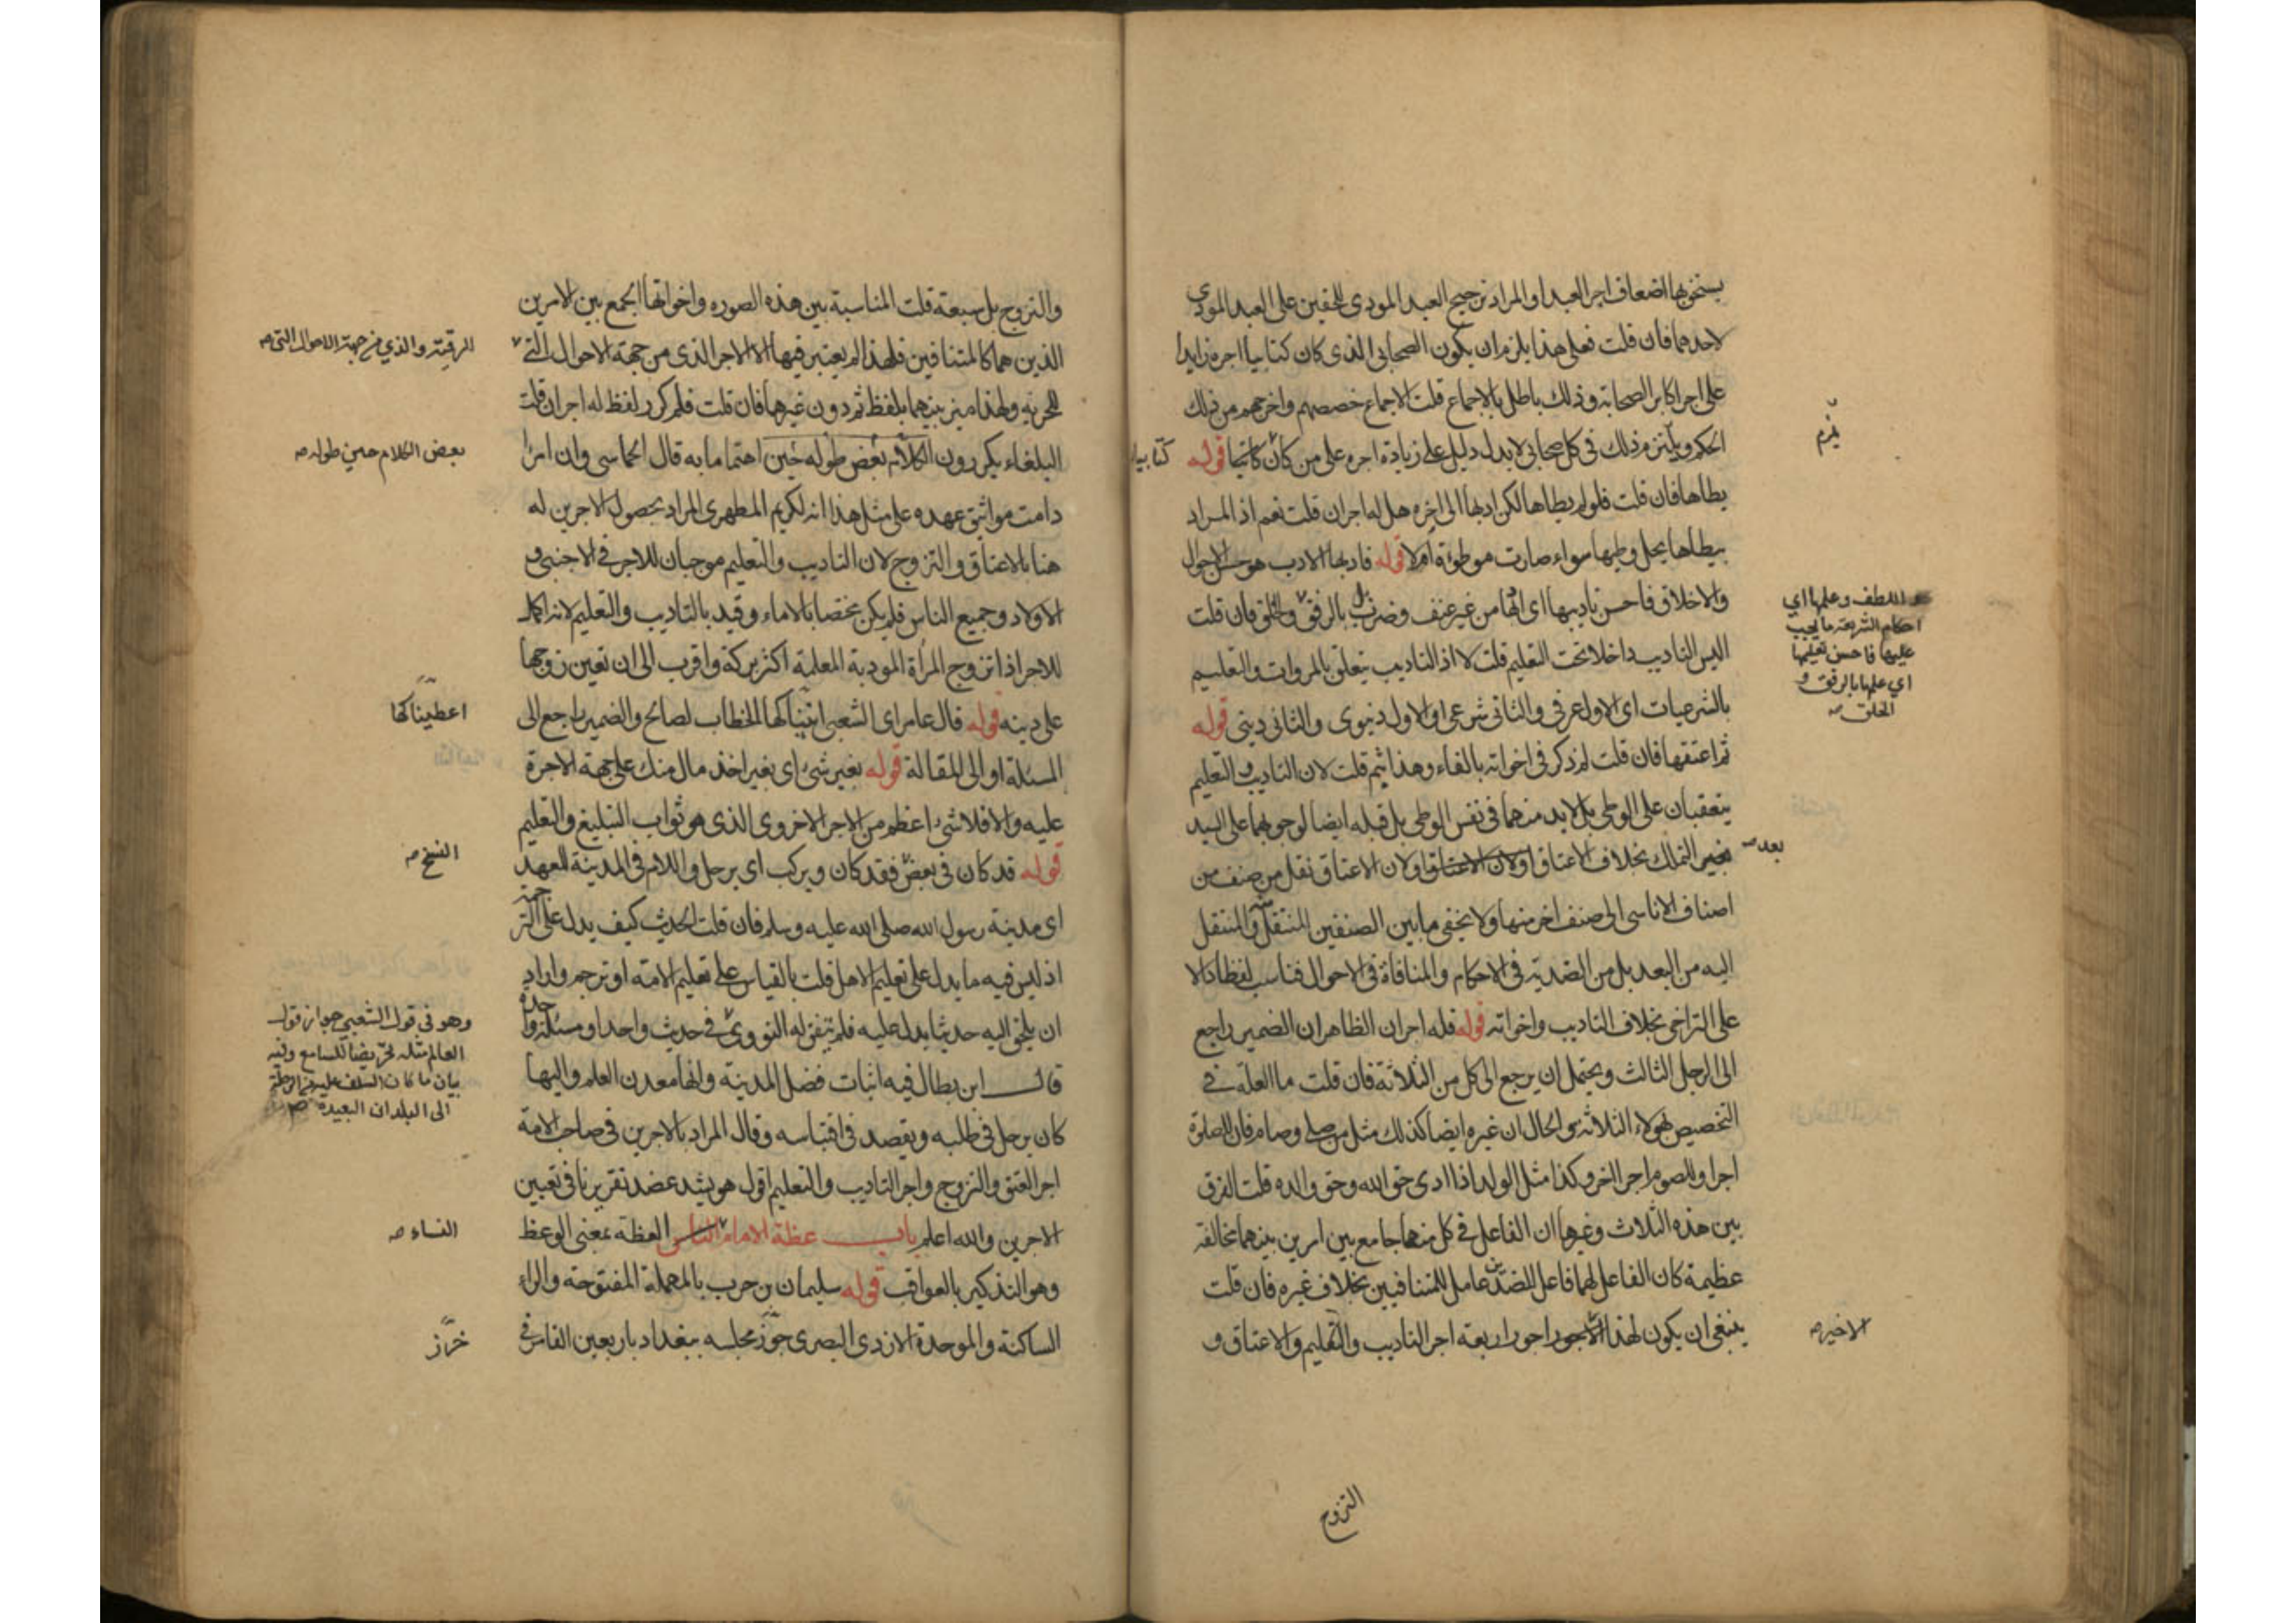 يستحق بها اضعاف اجر العبد او المراد ترجيح العبد المودي للحقين على العبد المودي
لاحدهما فان قلت فعلى هذا يلزم ان يكون الصحابي الذي كان كتابيا اجره زايدا
على اجر اكابر الصحابة وذلك باطل بالاجماع قلت الاجماع خصصهم واخرجهم من ذلك
الحكم ويلتزم ذلك في كل صحابي لا يدل دليل على زيادة اجره على من كان كاتبا قوله
يطاها فان قلت فلو لم يطاها لكن ادبها الى اخره هل له اجران قلت نعم اذ المراد
بيطاها يحل وطيها سواء صارت موطوءة ام لا قوله فادبها الادب هو حسن الاحوال
والاخلاق فاحسن تاديبها اي ادبها من غير عنف وضرب بل بالرفق والخلق فان قلت
اليس التاديب داخلا تحت التعليم قلت لا اذ التاديب يتعلق بالمروات والتعليم
بالشرعيات اي الاول عرفي والثاني شرعي او الاول دنيوي والثاني ديني قوله
ثم اعتقها فان قلت لم ذكر في اخواته بالفاء وهذا بثم قلت لان التاديب والتعليم
يتعقبان على الوطي بل لا بد منهما في نفس الوطي بل قبله ايضا لوجوبهما على السيد
التملك بخلاف الاعتاق او لان الاعتاق او لان الاعتاق نقل من صنف من
اصناف الاناسي الى صنف اخر منها ولا يخفى ما بين الصنفين المنتقل منه والمنتقل
اليه من البعد بل من الضدية في الاحكام والمنافاة في الاحوال فناسب لفظا دالا
على التراخي بخلاف التاديب واخواته قوله فله اجران الظاهر ان الضمير راجع
الى الرجل الثالث ويحتمل ان يرجع الى كل من الثلاثة فان قلت ما العلة في
التخصيص بهولاء الثلاثة والحال ان غيره ايضا كذلك مثل من صلى وصام فان للصلوة
اجرا وللصوم اجرا اخر وكذا مثل الولد اذا ادى حق الله وحق والده قلت الفرق
بين هذه الثلاث وغيرها ان الفاعل في كل منهما جامع بين امرين بينهما مخالفة
عظيمة كان الفاعل لهما فاعل للضدين عامل للمتنافيين بخلاف غيره فان قلت
ينبغي ان يكون لهذا الاجور اجور اربعة اجر التاديب والتعليم والاعتاق و
التزوج
يلزم
كتابيا
اللطف وعلمها اي
احكام الشريعة ما يجب
عليها فاحسن تعليمها
اي علمها بالرفق و
الخلق صح
بعد صح
الاخير صح
والتزوج بل سبعة قلت المناسبة بين هذه الصوره واخواتها الجمع بين الامرين
الذين هما كالمتنافين فلهذا لم يعتبر فيها الا الاجر الذي من جهة الاحوال التي
للحرية ولهذا ميز بينهما بلفظ ثم دون غيرها فان قلت فلم كرر لفظ له اجران قلت
البلغاء يكررون الكلام بعض طوله حين اهتماما به قال الحماسي وان امرا
دامت مواثيق عهده على مثل هذا انه لكريم المظهري المراد بحصول الاجرين له
هنا بالاعتاق والتزوج لان التاديب والتعليم موجبان للاجر في الاجنبي و
الاولاد وجميع الناس فلم يكن مختصا بالاماء وقيد بالتاديب والتعليم لانه اكمل
للاجر اذ تزوج المراة المودبة المعلمة اكثر بركة واقرب الى ان تعين زوجها
على دينه قوله قال عامر اي الشعبي الخطاب لصالح والضمير راجع الى
المسئلة او الى المقالة قوله بغير شئ اي بغير اخذ مال منك على جهة الاجرة
عليه والا فلا شئ اعظم من الاجر الاخروي الذي هو ثواب التبليغ والتعليم
قوله قد كان في بعض فقد كان ويركب اي يرحل واللام في المدينة للعهد
اي مدينة رسول الله صلى الله عليه وسلم فان قلت الحديث كيف يدل على الترجمة
اذ ليس فيه ما يدل على تعليم الاهل قلت بالقياس على تعليم الامة او ترجم واراد
ان يلحق اليه حديثا يدل عليه فلم يتفق له النووي في حديث واحد او مسئلة واحدة
قال ابن بطال فيه اثبات فضل المدينة وانها معدن العلم واليها
كان يرحل في طلبه ويقصد في اقتباسه وقال المراد بالاجرين في صاحب الامة
اجر العتق والتزوج واجر التاديب والتعليم اقول هو يشد عضد تقريرنا في تعيين
الاجرين والله اعلم باب عظة الامام الناس العظة بمعنى الوعظ
وهو التذكير بالعواقب قوله سليمان بن حرب بالمهملة المفتوحة والراء
الساكنة والموحدة الازدي البصري مجلسه ببغداد باربعين الفا في
الرقية والذي من جهة الاحوال التي صح
بعض الكلام حين طوله صح
اعطيناكها
النسخ صح
وهو في قول الشعبي جواز قول
العالم مثله تحريضا للسامع وفيه
بيان ما كان السلف عليه من الرحلة
الى البلدان البعيدة صح
النساء صح